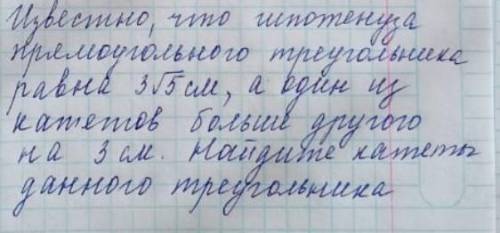 Известно, что гипотенуза
прямоугольного треугольника
равна 3√5 см, а один из
катетов больше другого
на 3 см. Найдите катеты
данного треугольника